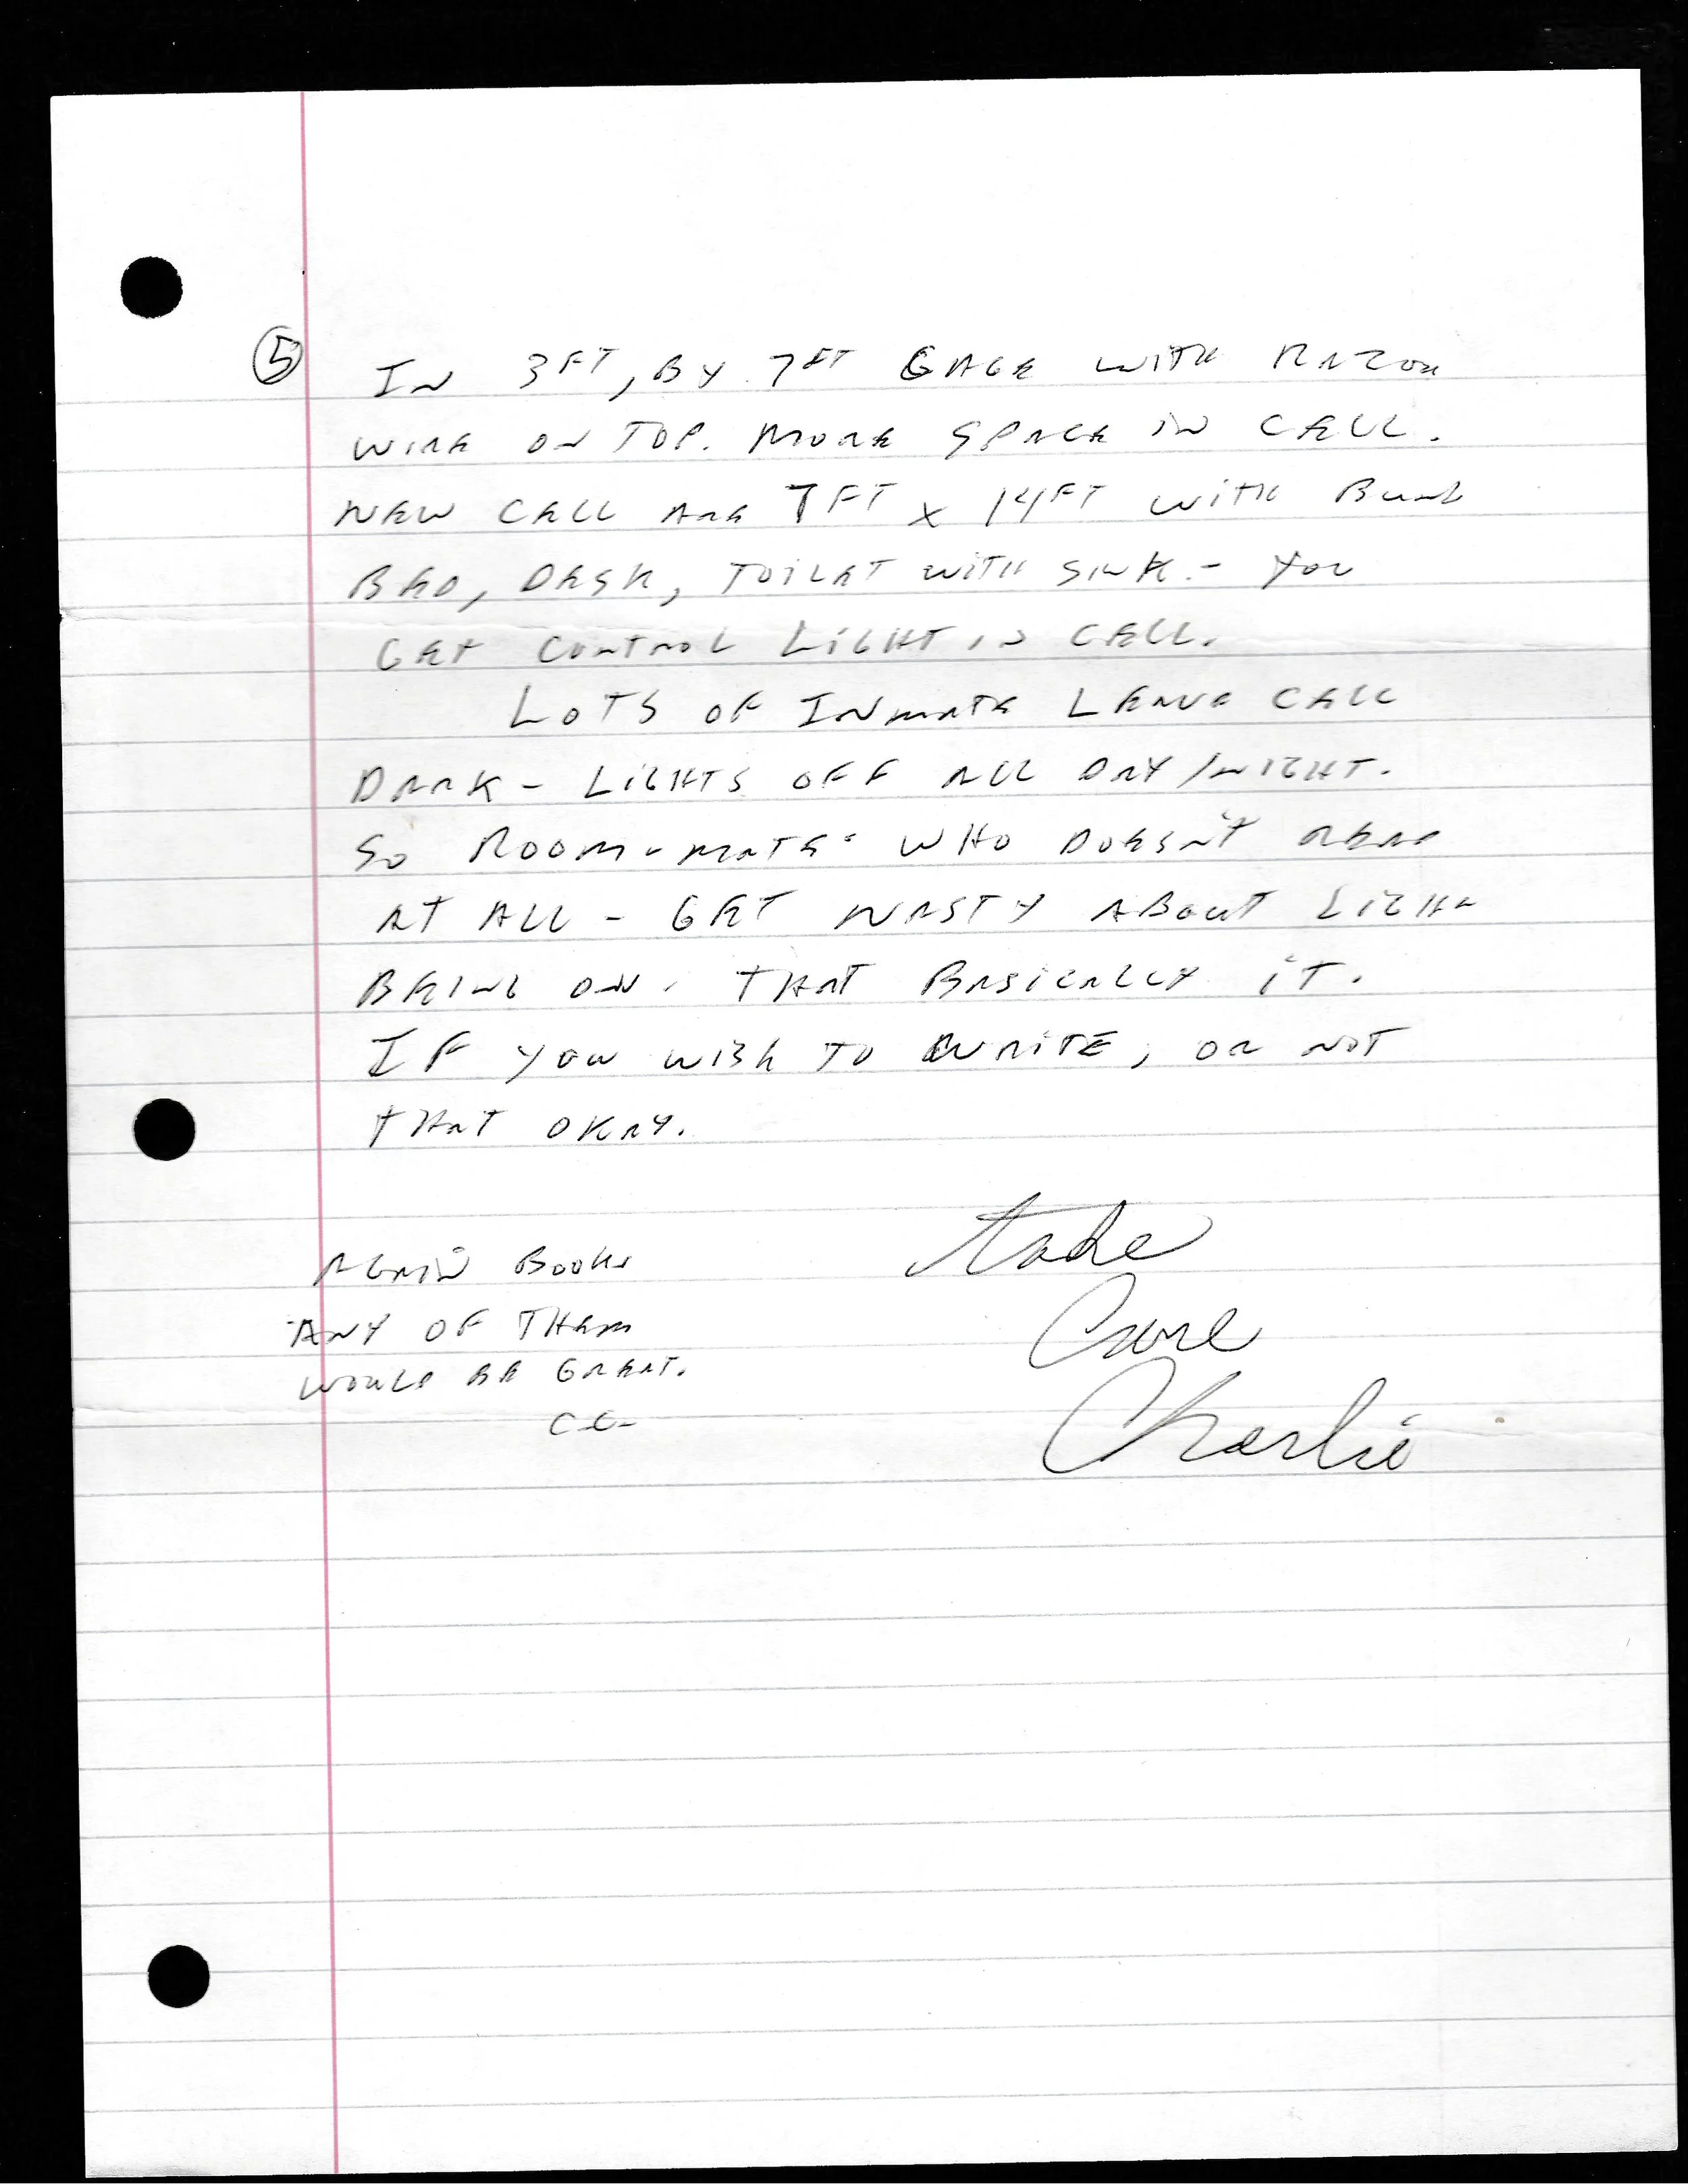 5
IN 3FT, BY 7FT CAGE WITH RAZOR
WIRE ON TOP. MORE SPACE IN CELL.
NEW CELL ARE 7FT x 14FT WITH BUNK
BED, DESK, TOILET WITH SINK - YOU
GET CONTROL LIGHT IN CELL.
LOTS OF INMATE LEAVE CELL
DARK - LIGHTS OFF ALL DAY/NIGHT.
SO ROOM-MATE WHO DOESN'T READ
AT ALL - GET NASTY ABOUT LIGHT
BEING ON. THAT BASICALLY IT.
IF YOU WISH TO WRITE, OR NOT
THAT OKAY.
Take
Care
Charlie
AGAIN BOOKS
ANY OF THEM
WOULD BE GREAT.